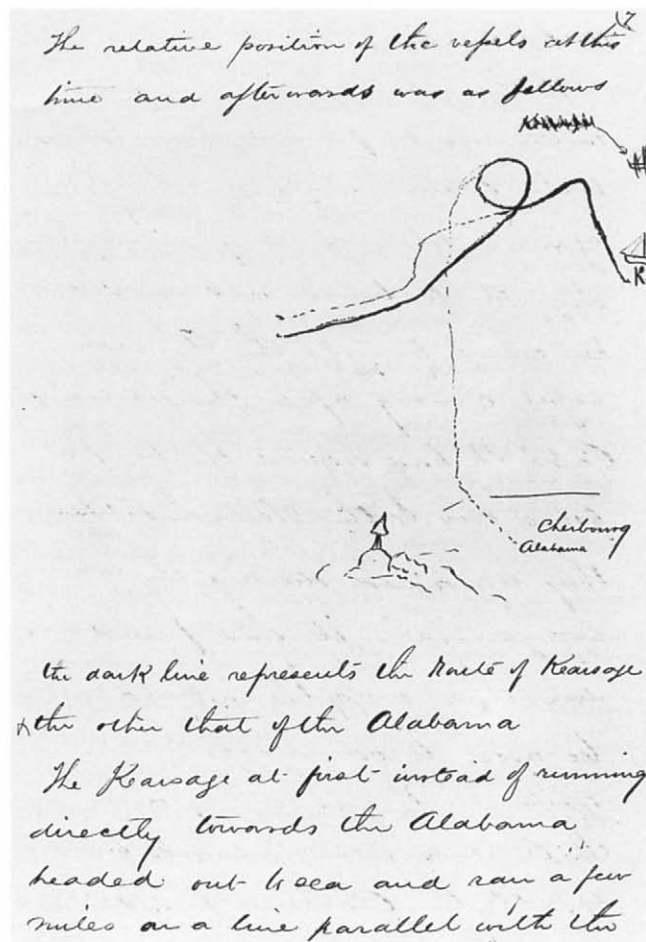 7
The relative position of the vessels at this
time and afterwards was as follows
K
Cherbourg
Alabama
the dark line represents the Route of Kearsage
& the other that of the Alabama
The Kearsage at first instead of running
directly towards the Alabama
headed out to sea and ran a few
miles on a line parallel with the